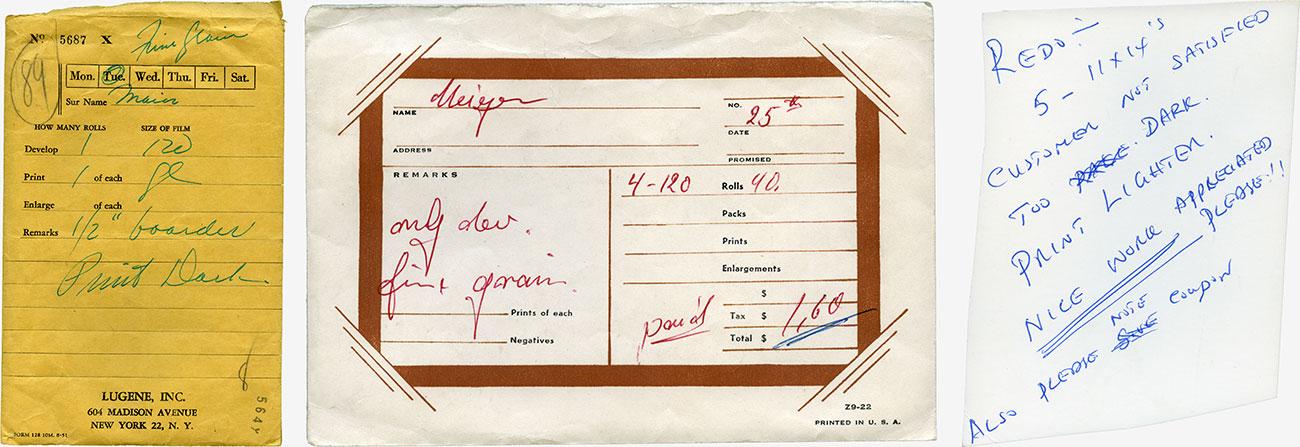 Nº 5687 X
Fine Grain
89
Mon. Tue. Wed. Thu. Fri. Sat.
Sur Name Maier
HOW MANY ROLLS SIZE OF FILM
Develop 1 120
Print 1 of each gl
Enlarge of each
Remarks 1/2" boarder
Print Dark
LUGENE, INC.
604 MADISON AVENUE
NEW YORK 22, N. Y.
FORM 128 10M. 8-51
564Y
NAME Meiyer
NO. 25th
DATE
ADDRESS
PROMISED
REMARKS
4-120 Rolls 40.
Packs
only dev.
Prints
fine grain.
Enlargements
$
Prints of each
paid Tax $ 1,60
Negatives
Total $
Z9-22
PRINTED IN U. S. A.
REDO:-
5 - 11X14'S
CUSTOMER NOT SATISFIED
TOO DARK.
PRINT LIGHTER.
NICE WORK APPRECIATED
PLEASE!!
ALSO PLEASE NOTE COUPON